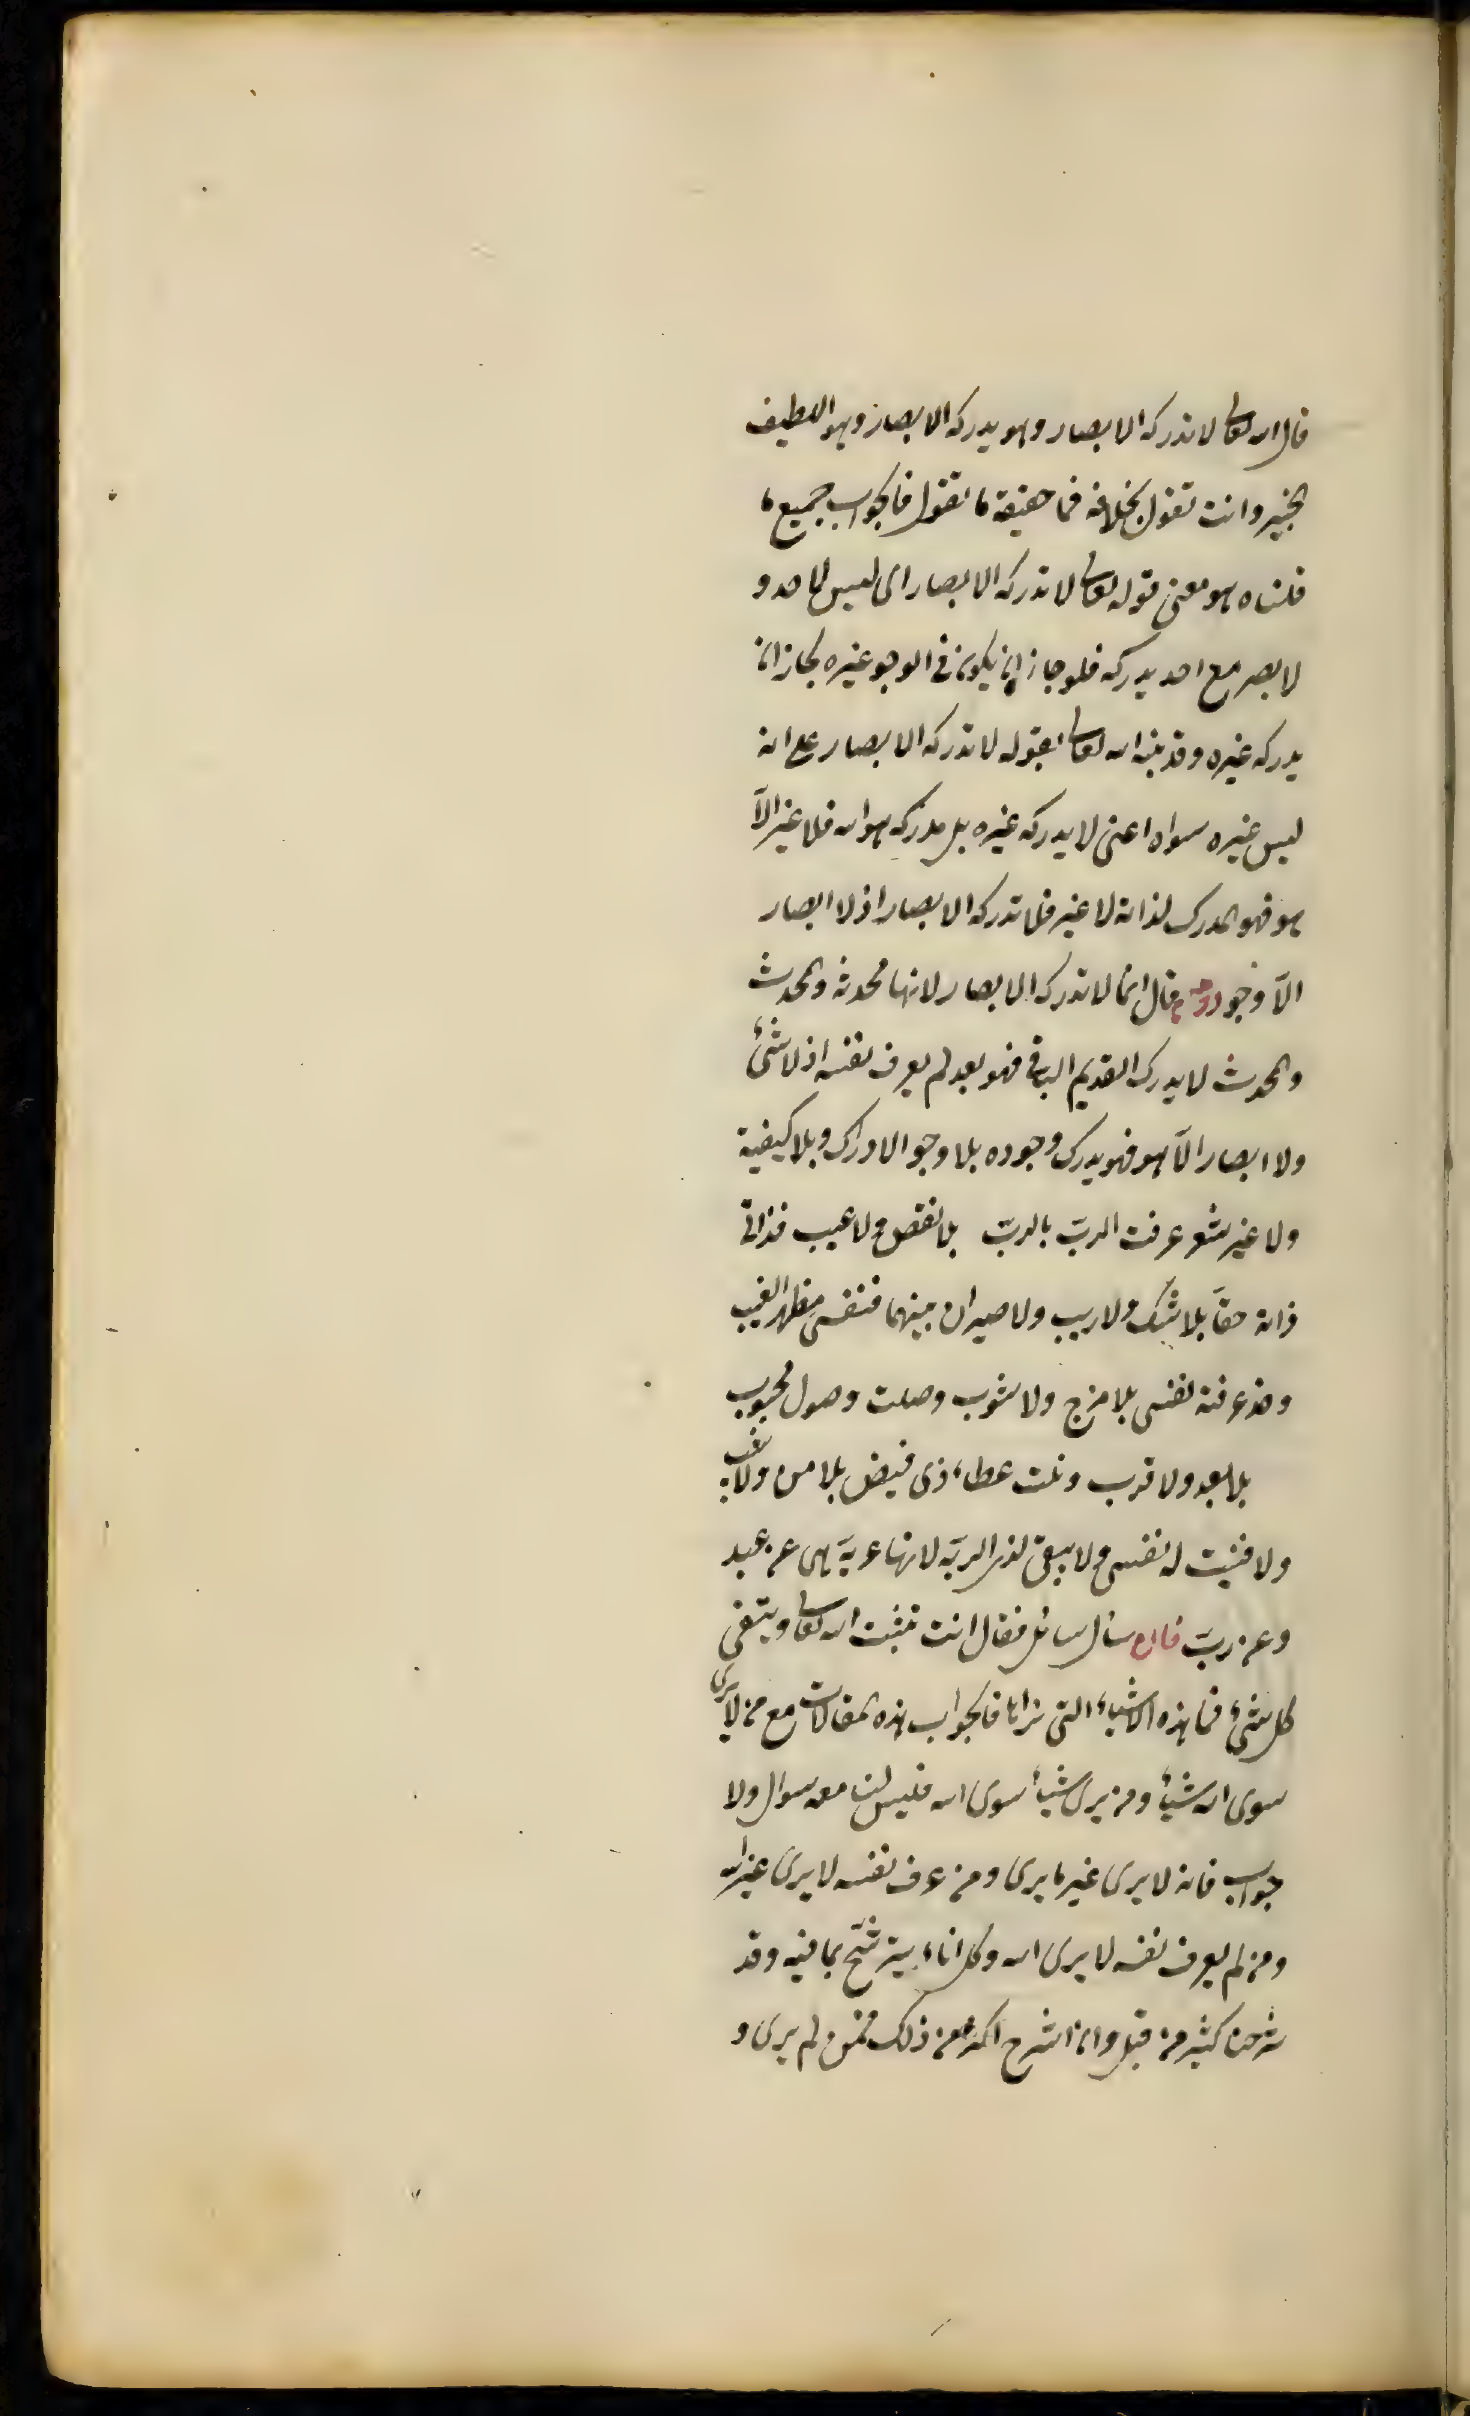 قال الله تعالى لا تدركه الابصار وهو يدرك الابصار وهو اللطيف
الخبير وانت تقول بخلافه فما حقيقة ما تقول فالجواب جميع ما
قلناه هو معنى قوله تعالى لا تدركه الابصار اى ليس لاحد و
لا بصر مع احد يدركه فلو جاز ان يكون فى الوجو غيره لجاز ان
يدركه غيره وقد نبه الله تعالى بقوله لا تدركه الابصار على انه
ليس غيره سواه اعنى لا يدركه غيره بل مدركه هو الله فلا غير الّا
هو فهو المدرك لذاته لا غير فلا تدركه الابصار اذ لا ابصار
الّا وجوده قال انما لا تدركه الابصار لانها محدثة والمحدث
والمحدث لا يدرك القديم الباقى فهو بعد لم يعرف نفسه اذ لا شئ
ولا ابصار الّا هو فهو يدرك وجوده بلا وجو الادراك وبلا كيفية
ولا غير شعر عرفت الربّ بالربّ بلا نقص ولا عيب فذاتى
ذاته حقّا بلا شك ولا ريب ولا صيران بينهما فنفسى مظهر الغيب
ومذ عرفته نفسى بلا مزج ولا شوب وصلت وصول محبوب
بلا بعد ولا قرب ونلت عطاء ذى فيض بلا من ولا
ولا فنيت له نفسى ولا يبقى لذى الربّه لانها عريّة هى عن عبد
وعن ربّ فان سأل سائل فقال انت تثبت الله تعالى وينتفى
كل شئ فما هذه الاشياء التى نراها فالجواب هذه المقالات مع من لا يرى
سوى الله شيئا ومن يرى شيئا سوى الله فليس لنا معه سوال ولا
جواب فانه لا يرى غير ما يرى ومن عرف نفسه لا يرى غير الله
ومن لم يعرف نفسه لا يرى الله وكل اناء يترشّح بما فيه وقد
شرحنا كثير من قبل وان اشرح اكثر من ذلك فمن لم يرى و